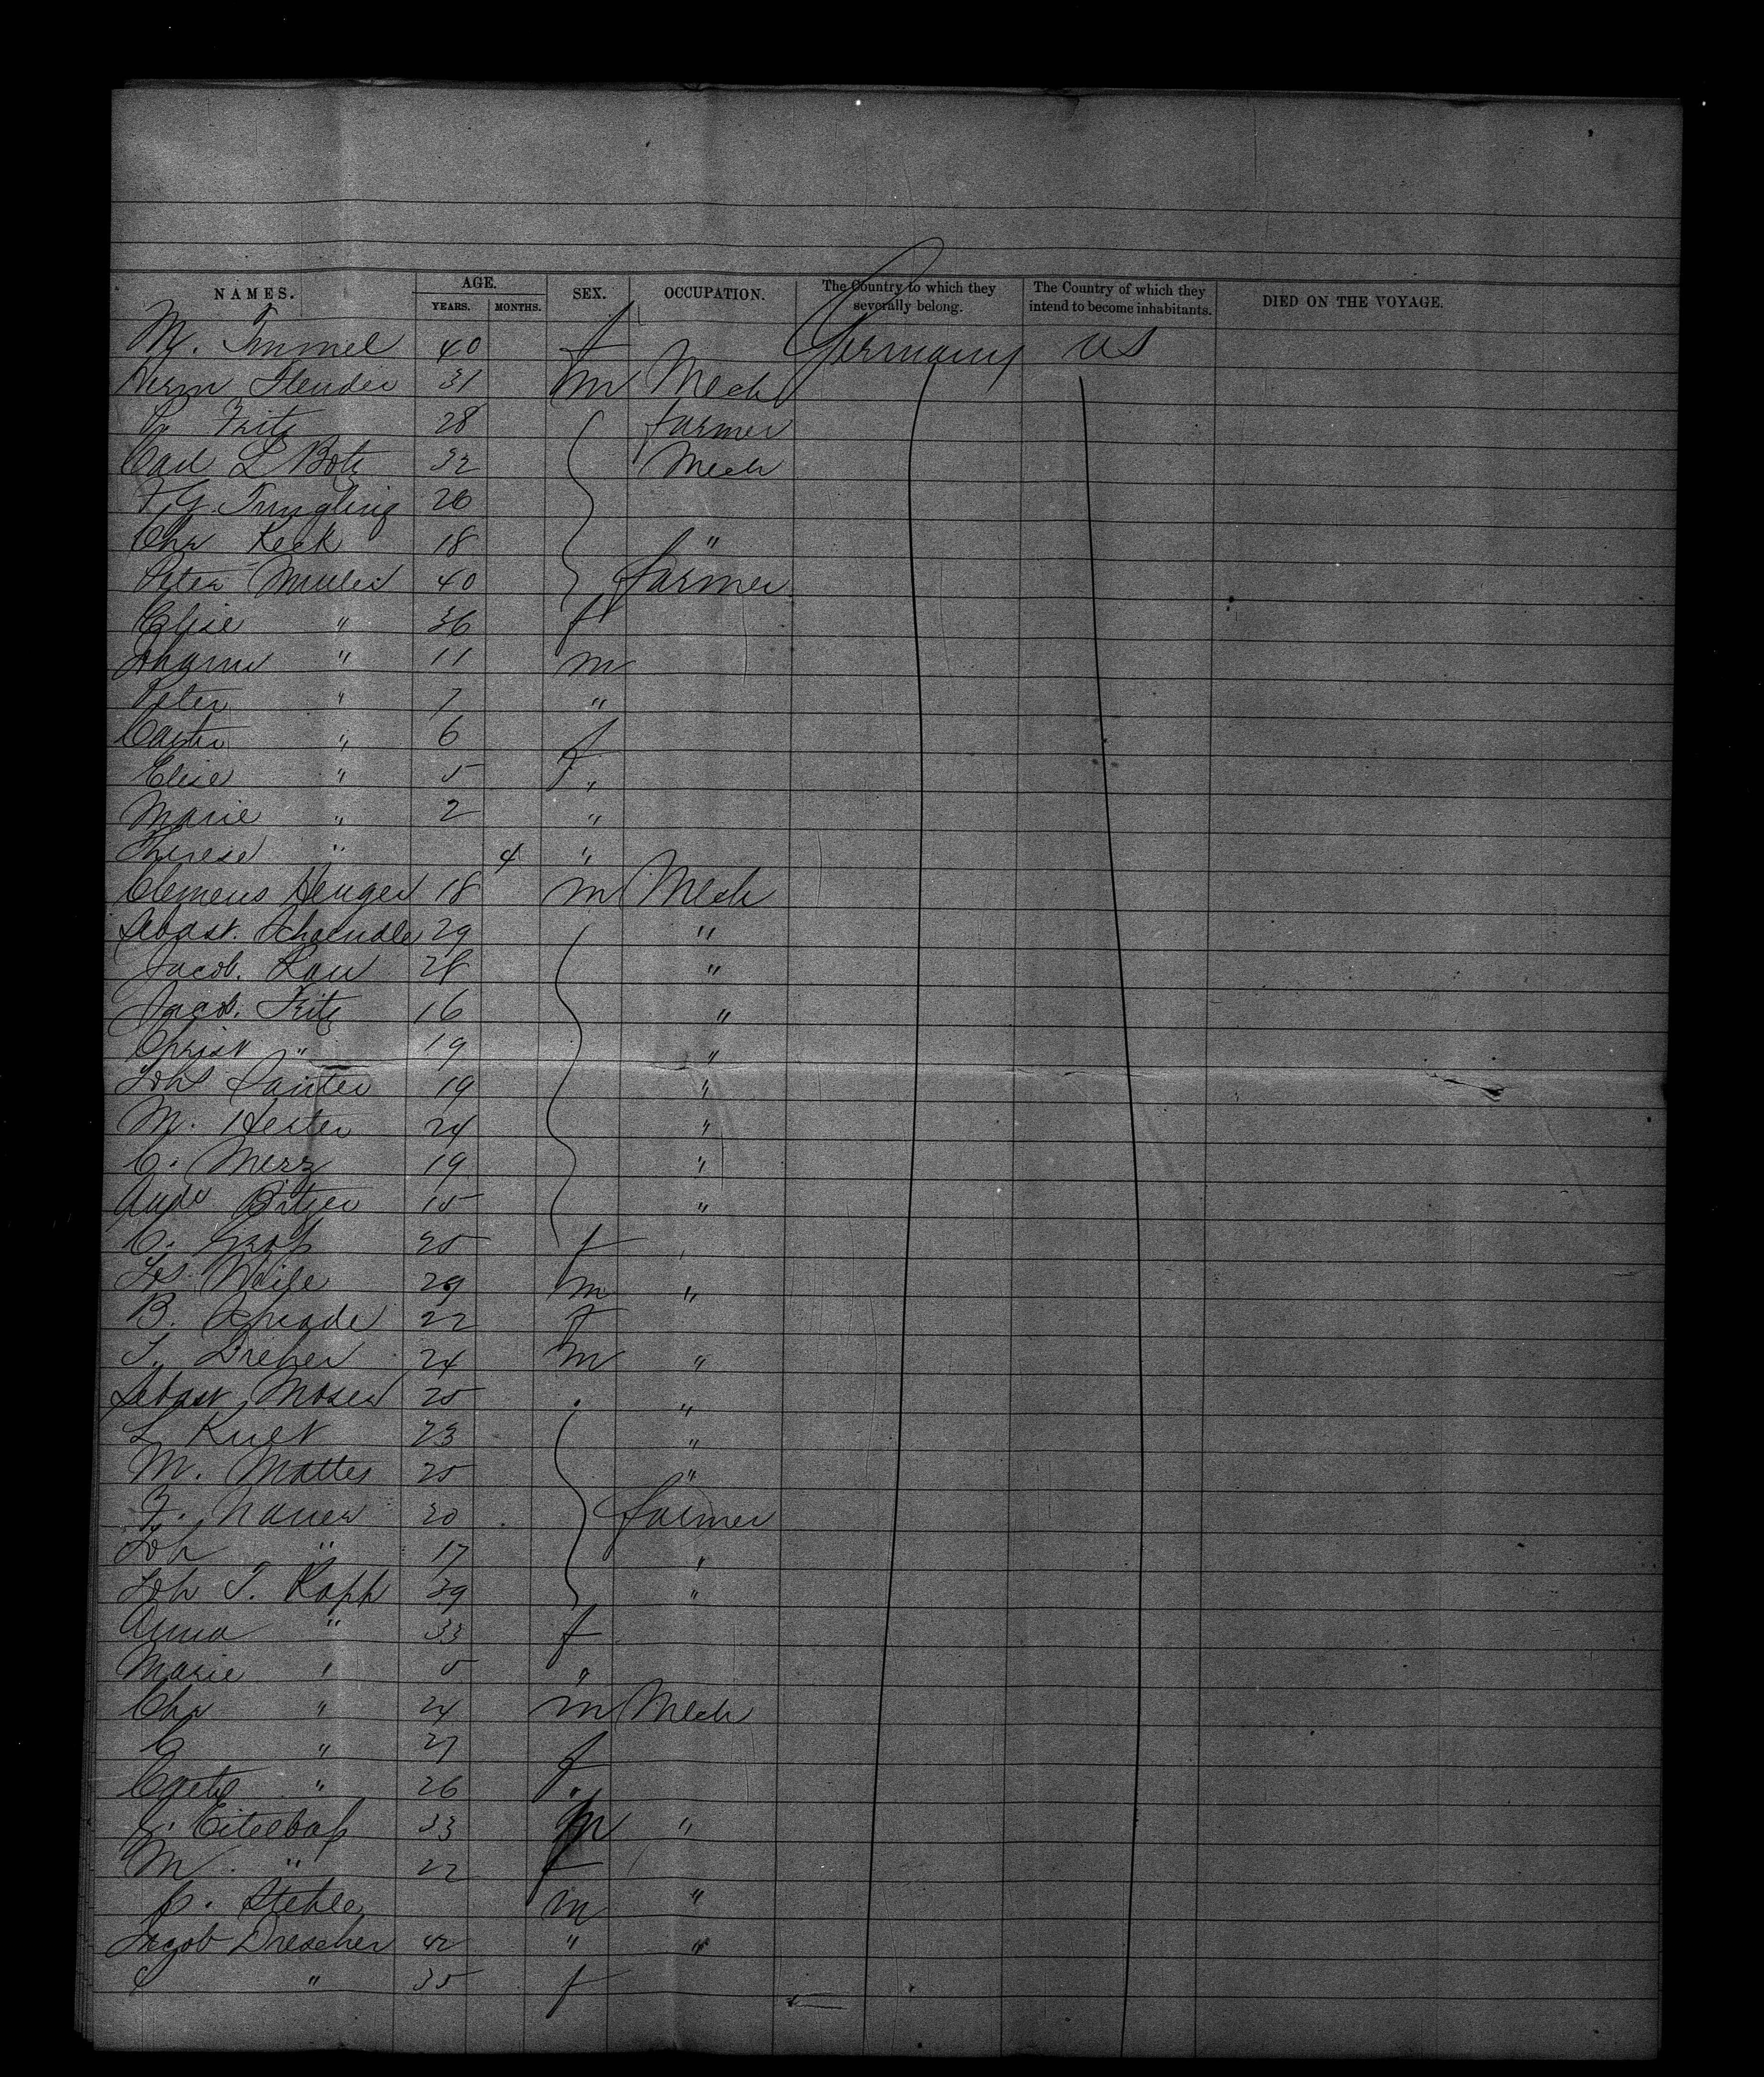 NAMES. AGE. SEX. OCCUPATION. The Country to which they severally belong. The Country of which they intend to become inhabitants. DIED ON THE VOYAGE.
YEARS. MONTHS.
M. 40 f Germany US
Herm 31 m Mech
Fritz 28 farmer
Carl L Botz 32 Mech
F. G. 26
Chr Keck 18 "
Peter Muller 40 farmer
Elise " 36 f
Johann " 11 m
Peter " 7 "
" 6 f
Elise " 5 f "
Marie " 2 "
Therese " 4 "
Clemens Henger 18 m Mech
Sebast. 29 "
Jacob. Rau 28 "
Jacob. Fritz 16 "
Christ " 19 "
Joh 19 "
M. Hester 24 "
C. Merz 19 "
Andr Bitzer 15 "
C. 25 f
29 m "
B. 22 f
Dreher 24 m "
Sebast Moser 25 "
23 "
M. Mattes 25 "
F. Nauer 30 farmer
Joh " 17 "
Joh J. Rapp 39 "
Anna " 33 f
Marie " 5 "
Chr " 24 m Mech
C " 27 f
" 26 "
33 m "
M. " 22 f
Stehle m "
Jacob Drescher 42 " "
" 35 f